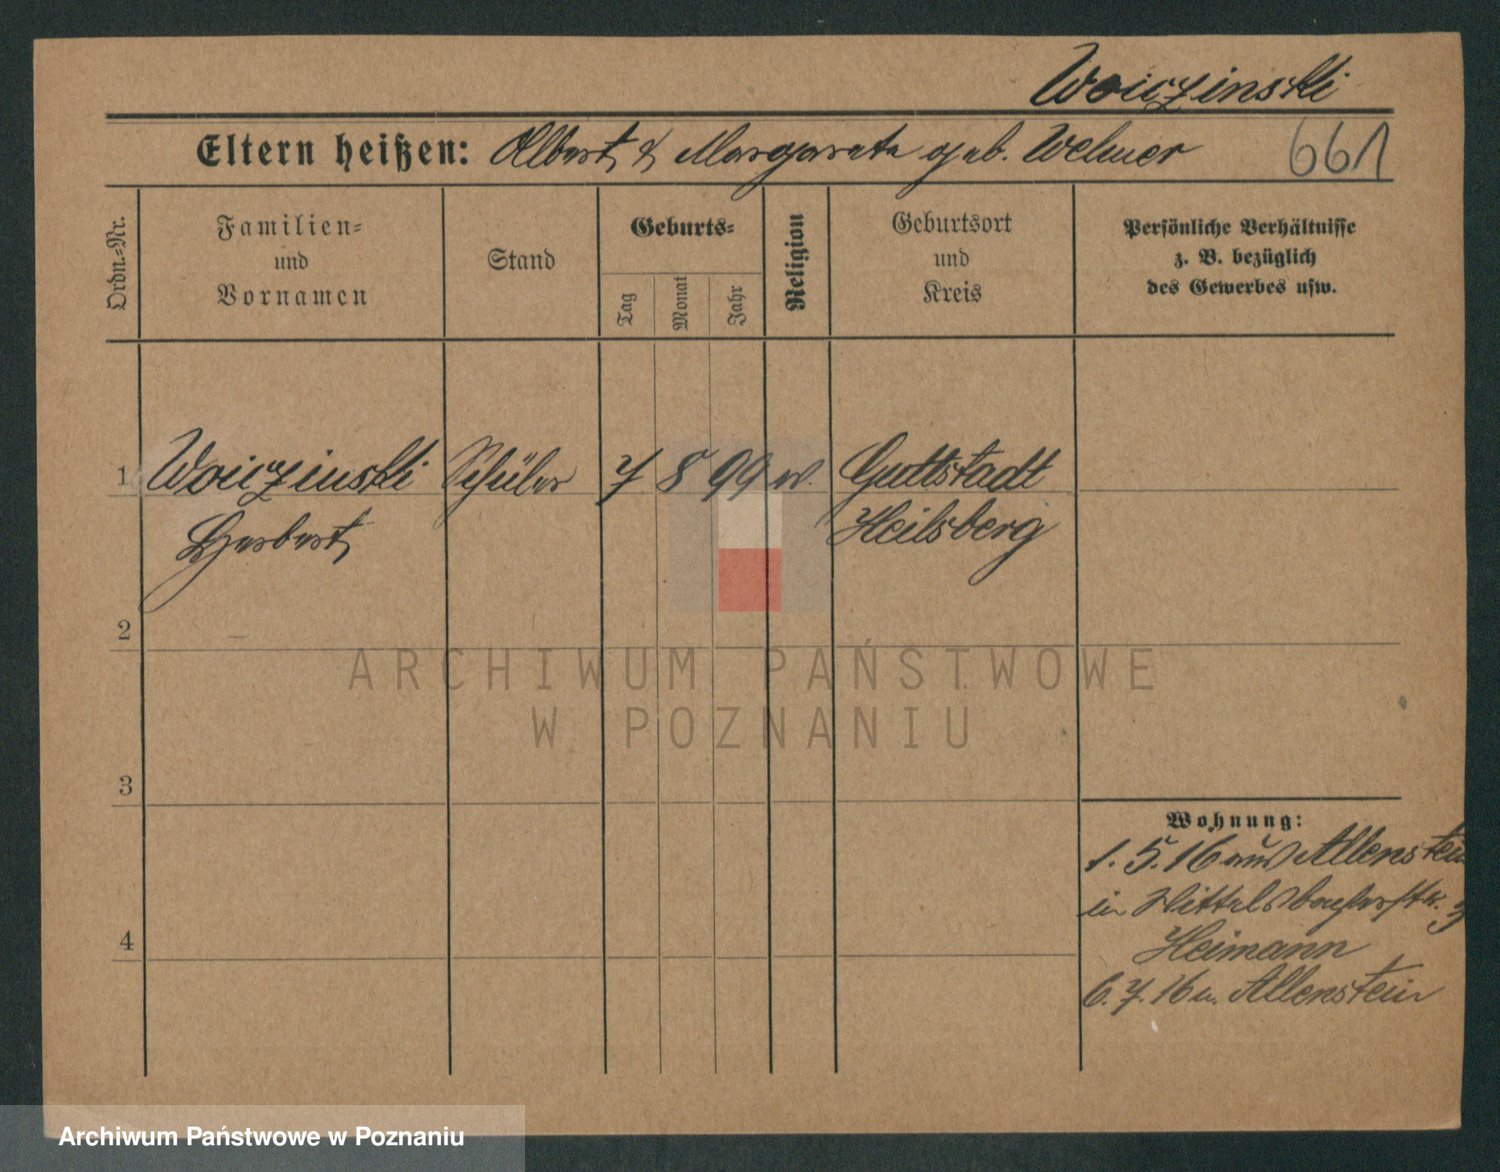 Woiczinski
Eltern heißen: Albert & Margarete geb. Welmer
661
Ordn.-Nr.
Familien-
und
Vornamen
Stand
Geburts-
Tag
Monat
Jahr
Religion
Geburtsort
und
Kreis
Persönliche Verhältnisse
z. B. bezüglich
des Gewerbes usw.
1 Woiczinski Schüler 7 8 99 Guttstadt
Herbert Heilsberg
2
3
4
Wohnung:
1. 5. 16 aus Allenstein
in Wittelsbacherstr.
Heimann
6. 7. 16 n. Allenstein
ARCHIWUM PAŃSTWOWE
W POZNANIU
Archiwum Państwowe w Poznaniu